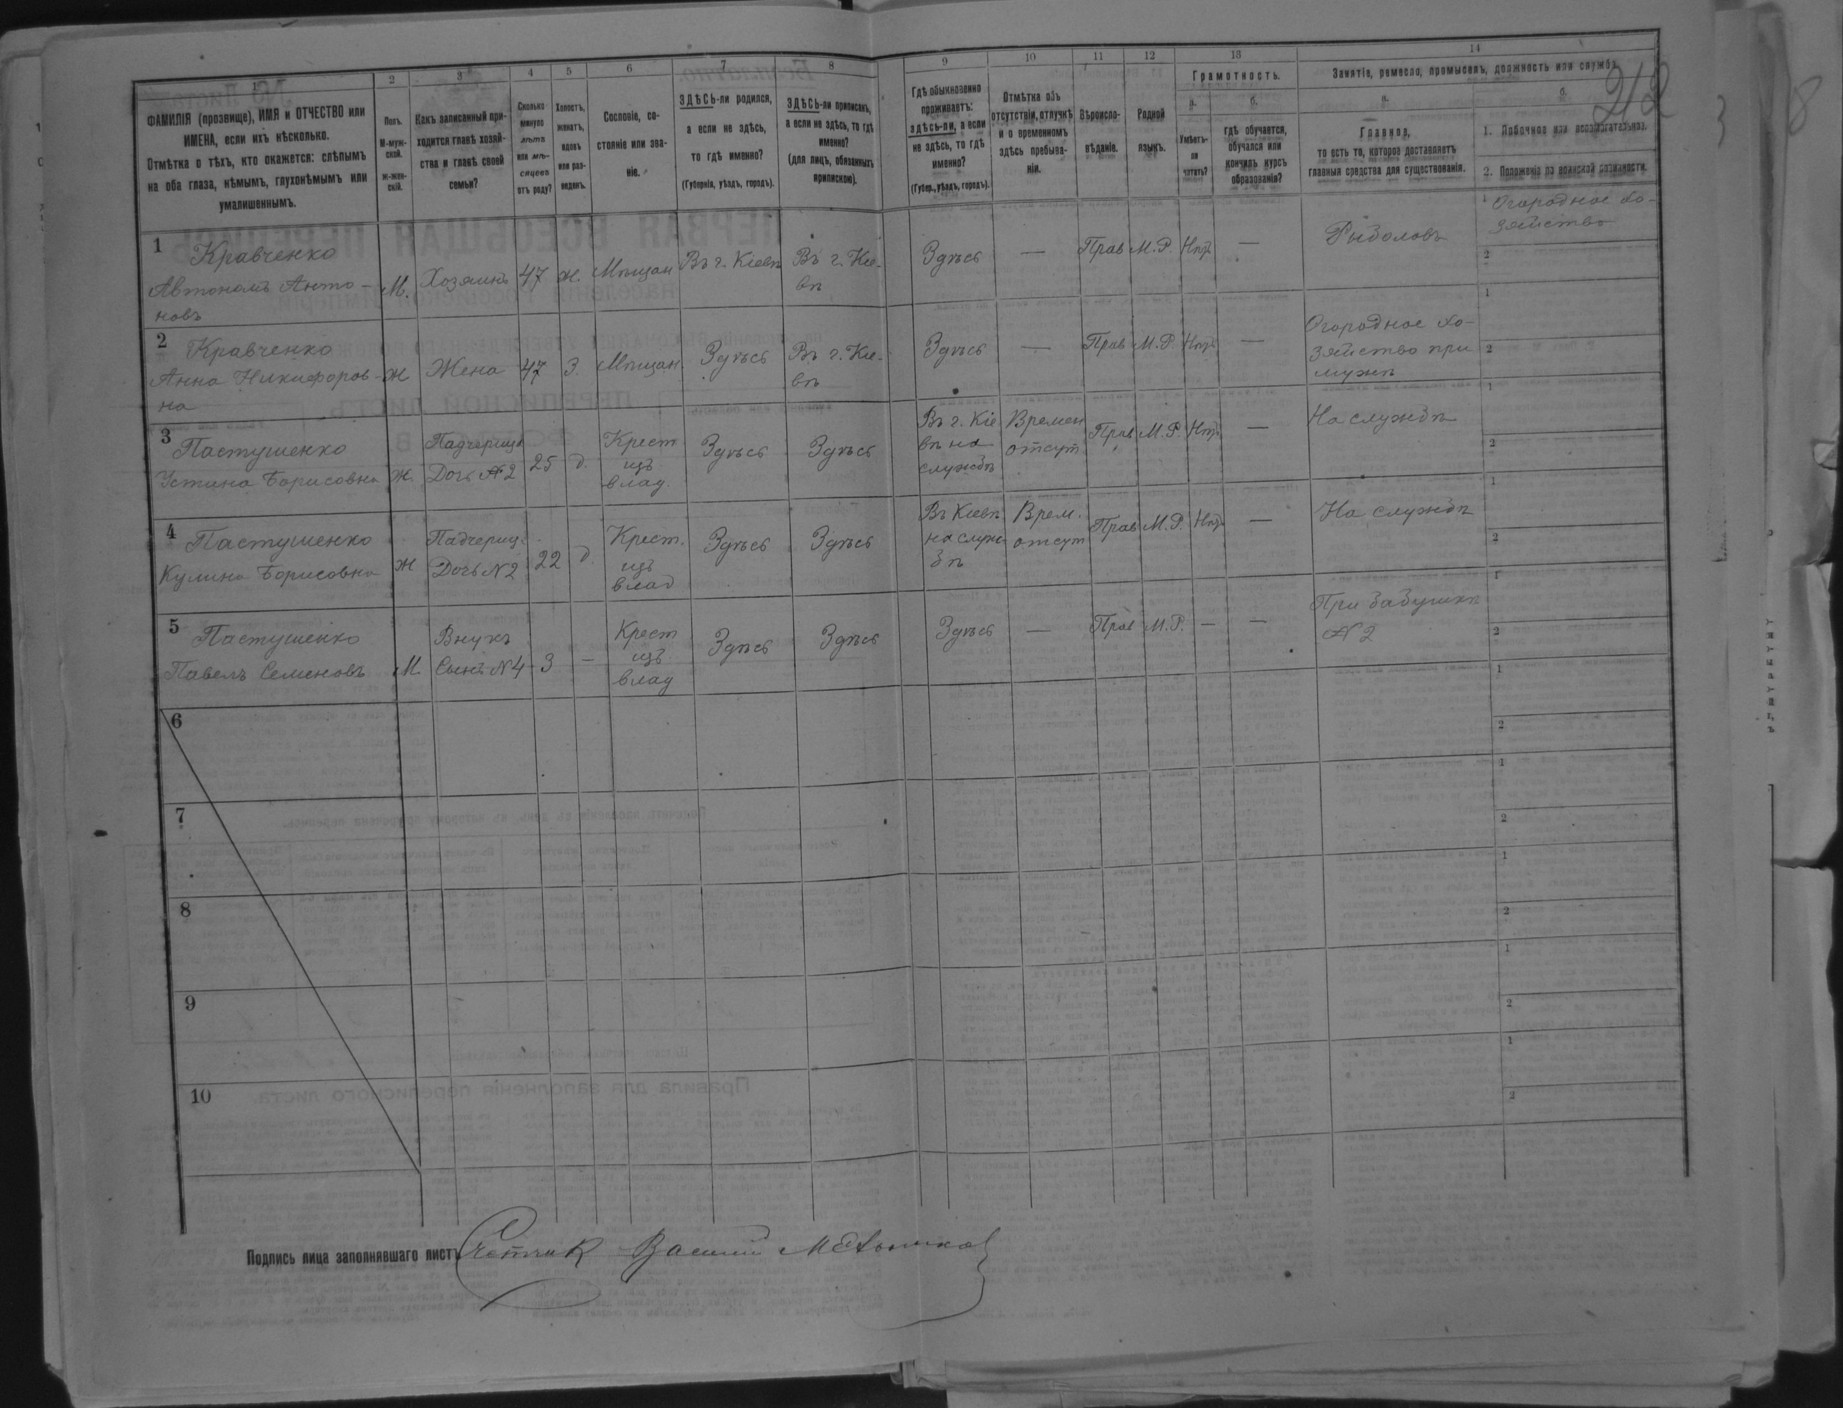 1 2 3 4 5 6 7 8 9 10 11 12 13 14
212
ФАМИЛІЯ (прозвище), ИМЯ и ОТЧЕСТВО или
ИМЕНА, если ихъ нѣсколько.
Отмѣтка о тѣхъ, кто окажется: слѣпымъ
на оба глаза, нѣмымъ, глухонѣмымъ или
умалишеннымъ.
Полъ.
М-муж-
ской.
ж-жен-
скій.
Какъ записанный при-
ходится главѣ хозяй-
ства и главѣ своей
семьи?
Сколько
минуло
лѣтъ
или мѣ-
сяцевъ
отъ роду?
Холостъ,
женатъ,
вдовъ
или раз-
веденъ.
Сословіе, со-
стояніе или зва-
ніе.
ЗДѢСЬ-ли родился,
а если не здѣсь,
то гдѣ именно?
(Губернія, уѣздъ, городъ).
ЗДѢСЬ-ли приписанъ,
а если не здѣсь, то гдѣ
именно?
(для лицъ, обязанныхъ
припискою).
Гдѣ обыкновенно
проживаетъ:
здѣсь-ли, а если
не здѣсь, то гдѣ
именно?
(Губер., уѣздъ, городъ).
Отмѣтка объ
отсутствіи, отлучкѣ
и о временномъ
здѣсь пребыва-
ніи.
Вѣроиспо-
вѣданіе.
Родной
языкъ.
Грамотность.
а.
Умѣетъ-
ли
читать?
б.
гдѣ обучается,
обучался или
кончилъ курсъ
образованія?
Занятіе, ремесло, промыселъ, должность или служба.
а.
Главное,
то есть то, которое доставляетъ
главныя средства для существованія.
б.
1. Побочное или вспомогательное.
2. Положеніе по воинской повинности.
1 Кравченко
Автономъ Анто-
новъ
М. Хозяинъ 47 ж. Мѣщан Въ г. Кіевѣ Въ г. Кіе-
вѣ
Здѣсь — Прав М.Р. Нѣтъ — Рыболовъ
1 Огородное хо-
зяйство
2
2 Кравченко
Анна Никифоров-
на
Ж Жена 47 З. Мѣщан. Здѣсь Въ г. Кіе-
вѣ
Здѣсь — Прав М.Р. Нѣтъ —
Огородное хо-
зяйство при
мужѣ
1
2
3 Пастушенко
Устина Борисовна
Ж. Падчерица
Дочь №2
25 д. Крест
изъ
влад.
Здѣсь Здѣсь
Въ г. Кіе
вѣ на
службѣ
Времен
отсут
Прав М.Р. Нѣтъ — На службѣ
1
2
4 Пастушенко
Кулина Борисовна
Ж Падчериц.
Дочь №2
22 д. Крест.
изъ
влад
Здѣсь Здѣсь
Въ Кіевѣ
на служ-
бѣ
Врем.
отсут
Прав М.Р. Нѣтъ — На службѣ
1
2
5 Пастушенко
Павелъ Семеновъ
М. Внукъ
Сынъ №4
3 — Крест
изъ
влад
Здѣсь Здѣсь Здѣсь — Прав М.Р. — —
При бабушкѣ
№2
1
2
6
1
2
7
1
2
8
1
2
9
1
2
10
1
2
Подпись лица заполнявшаго листъ Счетчик Василій Мельников